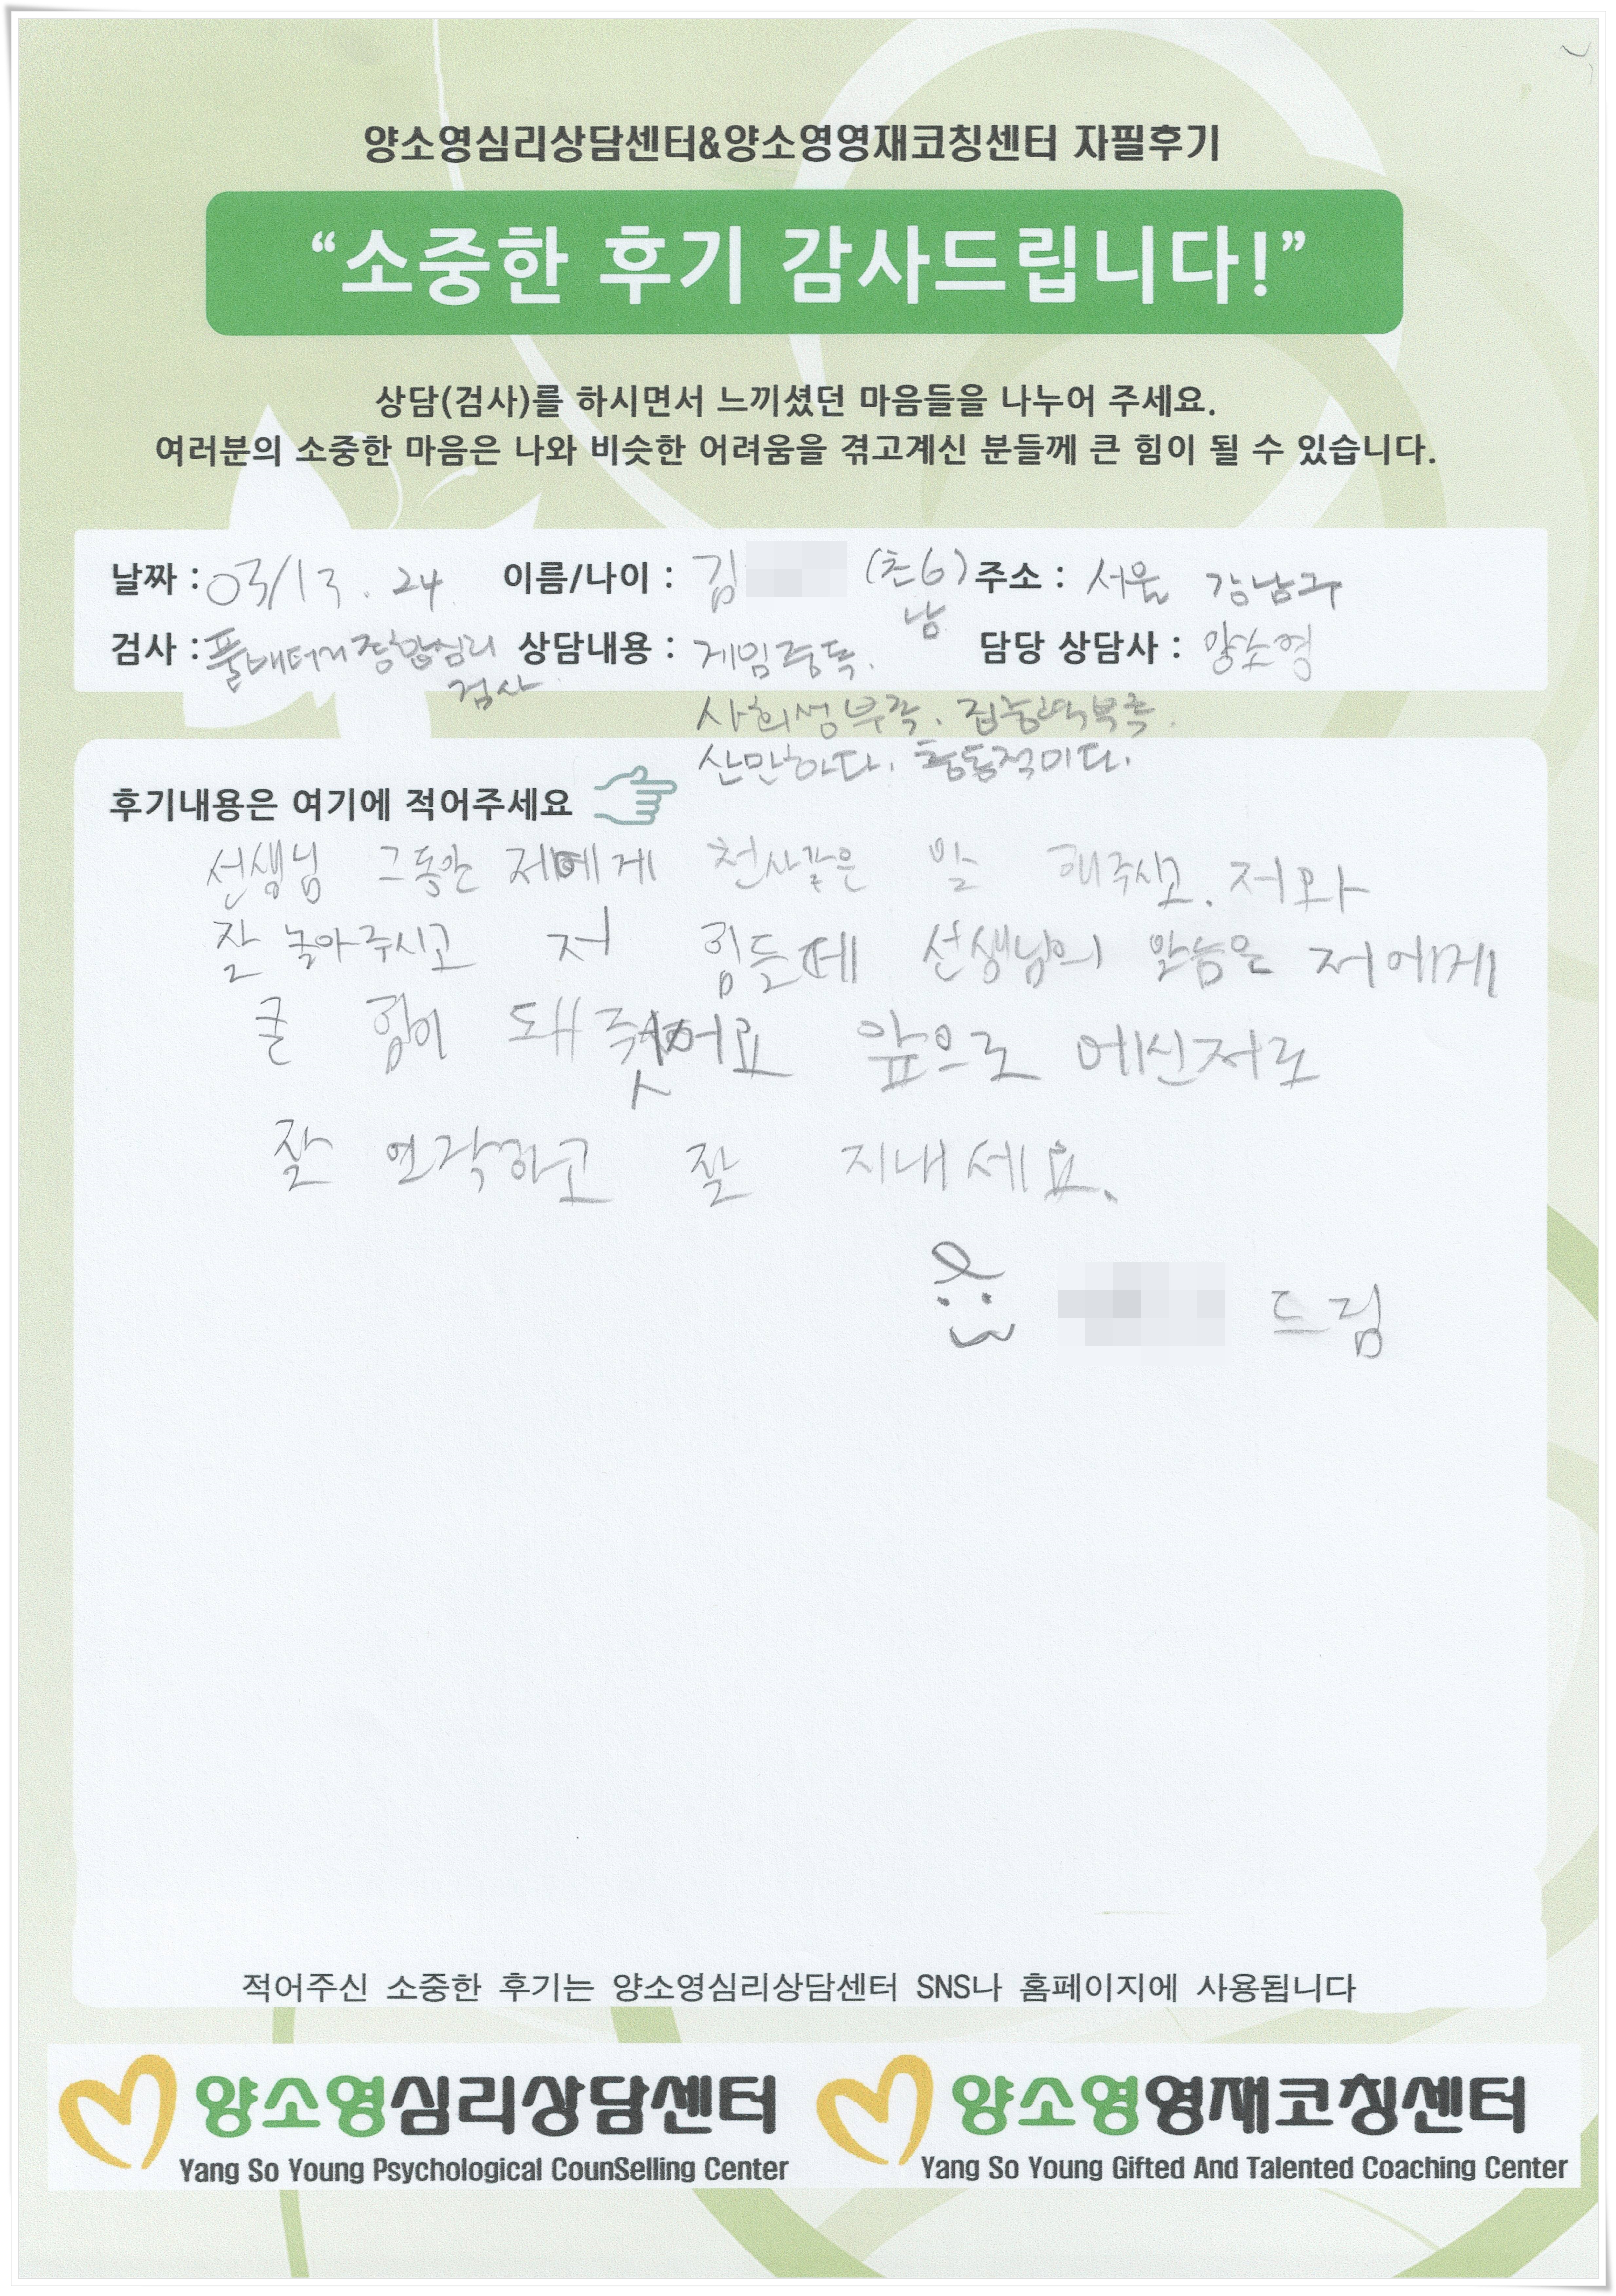 양소영심리상담센터&양소영영재코칭센터 자필후기
“소중한 후기 감사드립니다!”
상담(검사)를 하시면서 느끼셨던 마음들을 나누어 주세요.
여러분의 소중한 마음은 나와 비슷한 어려움을 겪고계신 분들께 큰 힘이 될 수 있습니다.
날짜 : 03/13. 24 이름/나이 : 김 (초6) 남 주소 : 서울 강남구
검사 : 풀배터리종합심리검사 상담내용 : 게임중독. 담당 상담사 : 양소영
사회성부족. 집중력부족.
산만하다. 충동적이다.
후기내용은 여기에 적어주세요
선생님 그동안 저에게 천사같은 말 해주시고. 저와
잘 놀아주시고 저 힘들때 선생님의 말씀은 저에게
큰 힘이 돼 줫어요 앞으로 에신저로
잘 연락하고 잘 지내세요.
드림
적어주신 소중한 후기는 양소영심리상담센터 SNS나 홈페이지에 사용됩니다
양소영심리상담센터 양소영영재코칭센터
Yang So Young Psychological CounSelling Center Yang So Young Gifted And Talented Coaching Center